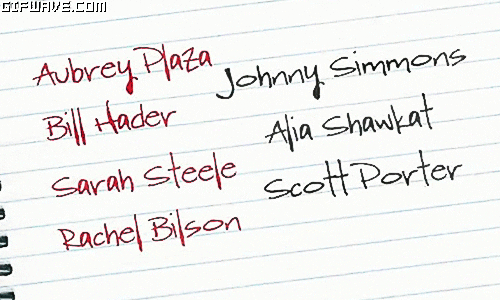 GIFWAVE.COM
Aubrey Plaza
Bill Hader
Sarah Steele
Rachel Bilson
Johnny Simmons
Alia Shawkat
Scott Porter